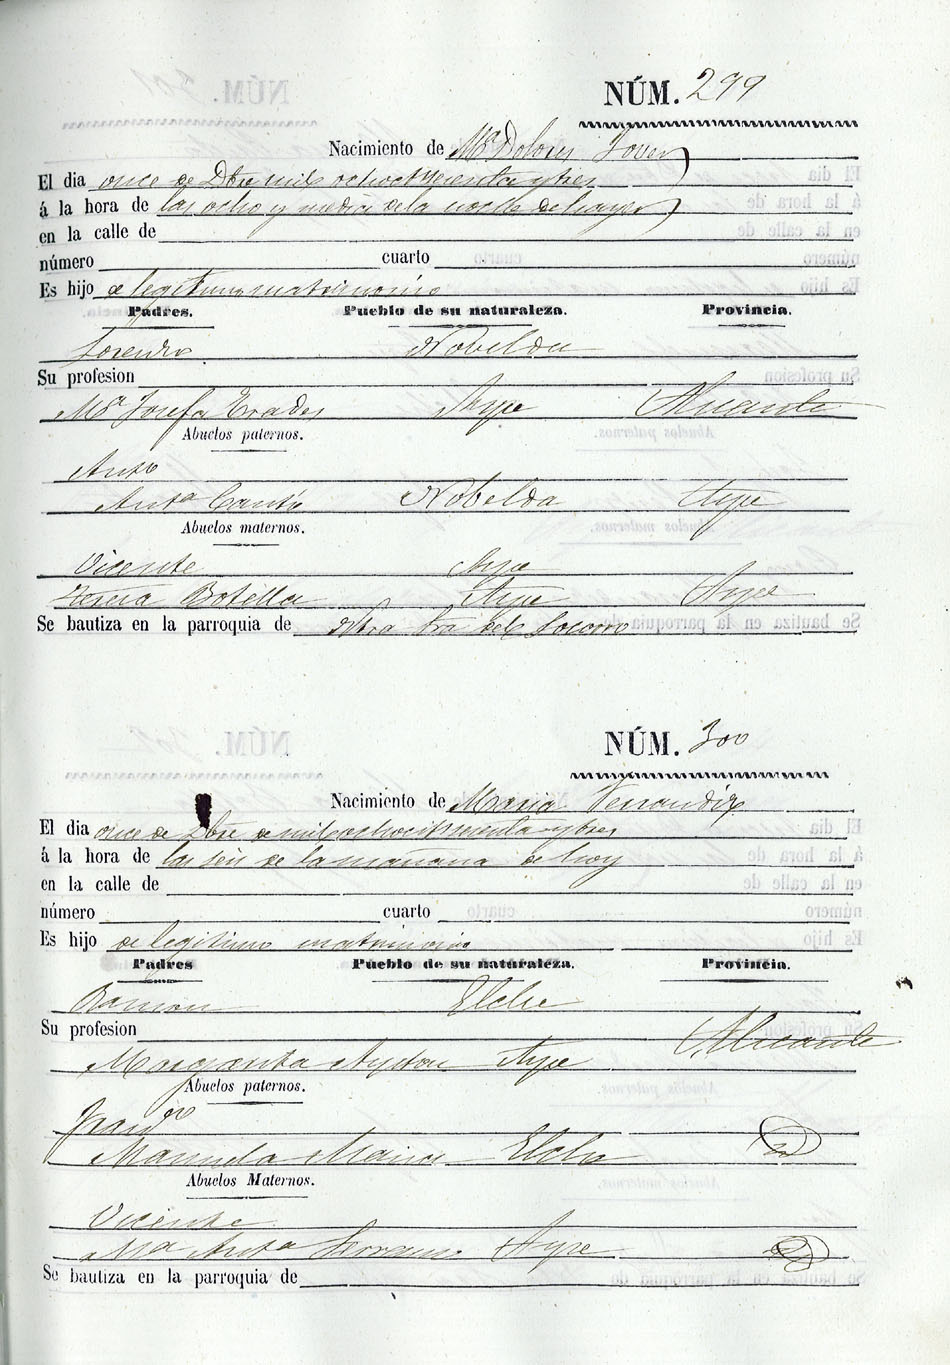 NÚM. 299
Nacimiento de Mª Dolores Jover
El dia once de Dbre mil ochocts sesenta y tres
á la hora de las ocho y media de la noche de hayer
en la calle de
número cuarto
Es hijo de legitimo matrimonio
Padres. Pueblo de su naturaleza. Provincia.
Lorenzo Nobelda
Su profesion
Mª Josefa Erades Aspe Alicante
Abuelos paternos.
Antº
Antª Cantó Nobelda Aspe
Abuelos maternos.
Vicente Aspe
Teresa Botella Aspe Aspe
Se bautiza en la parroquia de Ntra Sra del Socorro
NÚM. 300
Nacimiento de Maria Verrandiz
El dia once de Dbre de mil ochocits sesenta y tres
á la hora de las seis de la mañana de hoy
en la calle de
número cuarto
Es hijo de legitimo matrimonio
Padres Pueblo de su naturaleza. Provincia.
Ramon Elche
Su profesion
Margarita Aspe Alicante
Abuelos paternos.
Franco
Manuela Elche
Abuelos Maternos.
Vicente
Antª Serrano Aspe
Se bautiza en la parroquia de